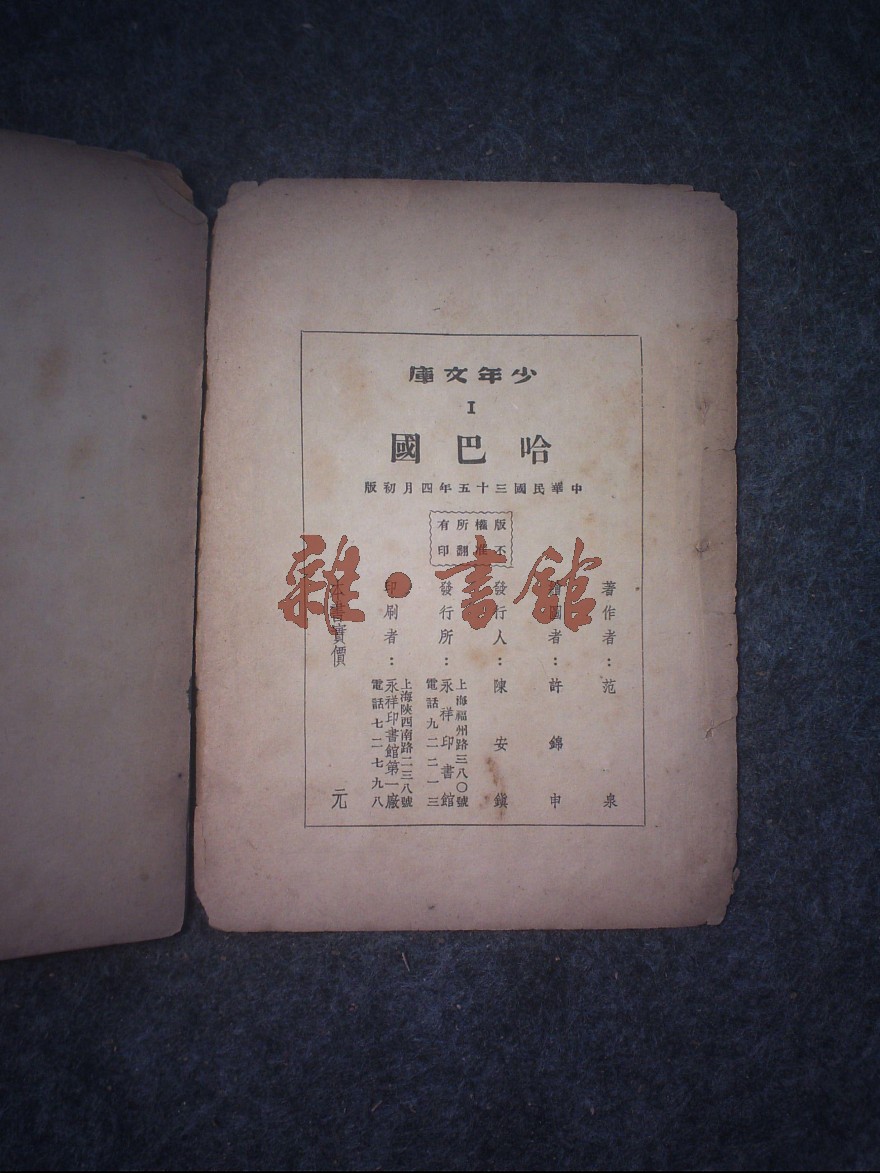 少年文庫
I
哈巴國
中華民國三十五年四月初版
版權所有
不准翻印
著作者：范泉
繪圖者：許錦申
發行人：陳安鎮
發行所：
上海福州路三八〇號
永祥印書館
電話九二二一三
印刷者：
上海陝西南路二三八號
永祥印書館第一廠
電話七二七九八
本書實價 元
雜·書館